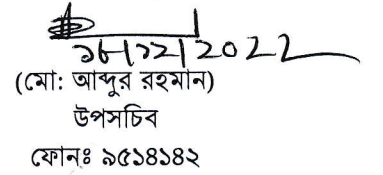 ১৮/১২/2022
(মো: আব্দুর রহমান)
উপসচিব
ফোনঃ ৯৫১৪১৪২